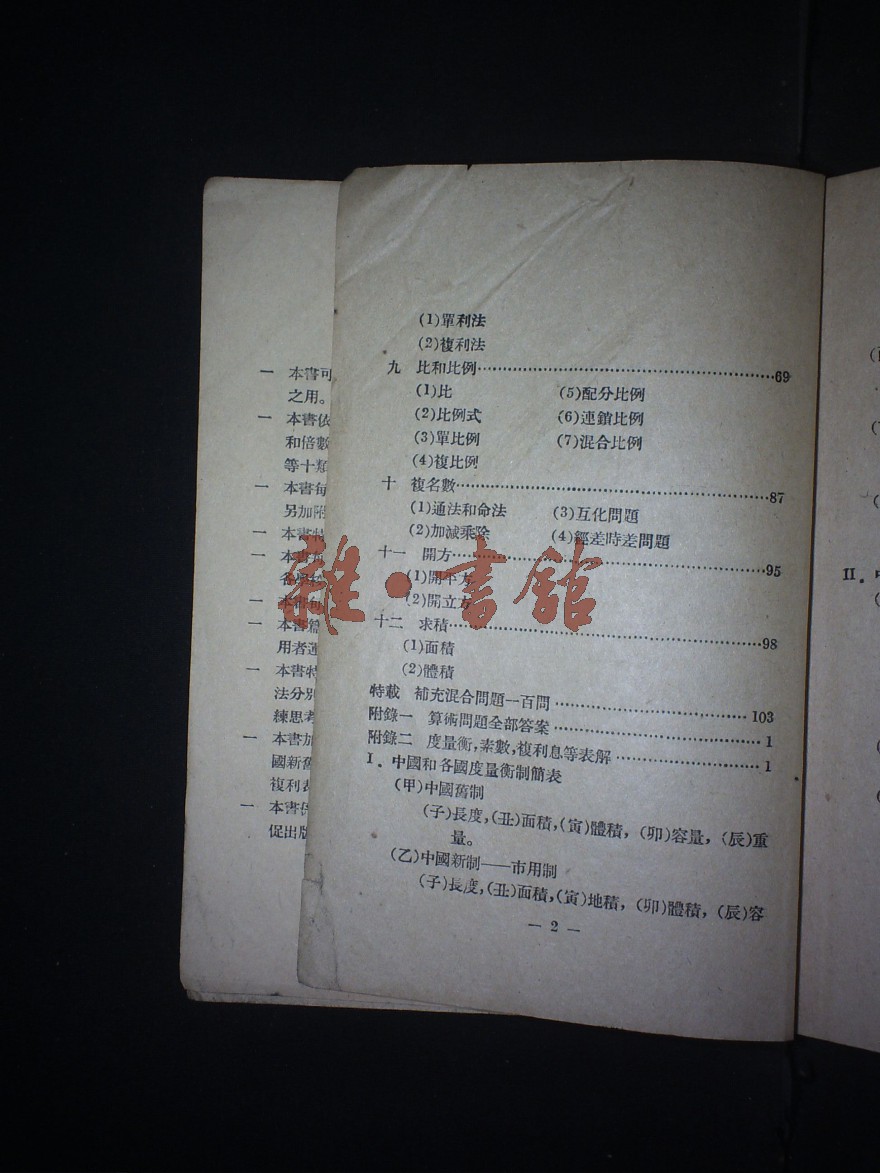 一 本書可
之用。
一 本書依
和倍數
等十類
一 本書每
另加附
一 本書特
一 本書
一 本書
一 本書篇
用者運
一 本書特
法分別
練思考
一 本書加
國新舊
複利表
一 本書
促出版
(1)單利法
(2)複利法
九 比和比例……69
(1)比 (5)配分比例
(2)比例式 (6)連鎖比例
(3)單比例 (7)混合比例
(4)複比例
十 複名數……87
(1)通法和命法 (3)互化問題
(2)加減乘除 (4)經差時差問題
十一 開方……95
(1)開平方
(2)開立方
十二 求積……98
(1)面積
(2)體積
特載 補充混合問題一百問……103
附錄一 算術問題全部答案……1
附錄二 度量衡,素數,複利息等表解……1
I. 中國和各國度量衡制簡表
(甲)中國舊制
(子)長度,(丑)面積,(寅)體積,(卯)容量,(辰)重
量。
(乙)中國新制——市用制
(子)長度,(丑)面積,(寅)地積,(卯)體積,(辰)容
— 2 —
II.
雜·書館